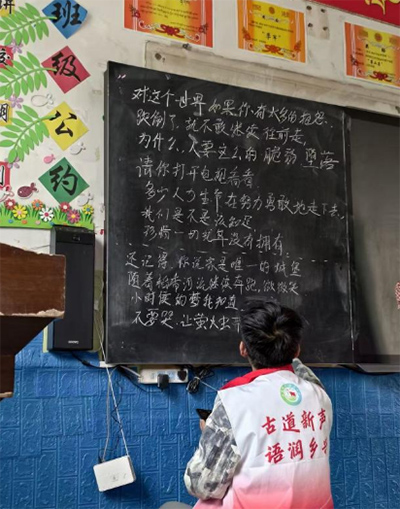 班
级
公
约
对这个世界如果你有太多的抱怨,
跌倒了,就不敢继续往前走,
为什么,人要这么的脆弱 堕落
请你打开电视看看
多少人为生命在努力勇敢地走下去,
我们是不是该知足,
珍惜一切就算没有拥有
还记得,你说家是唯一的城堡
随着稻香河流继续奔跑,微微笑
小时候的梦我知道
不要哭,让萤火虫
古道新声
语润乡